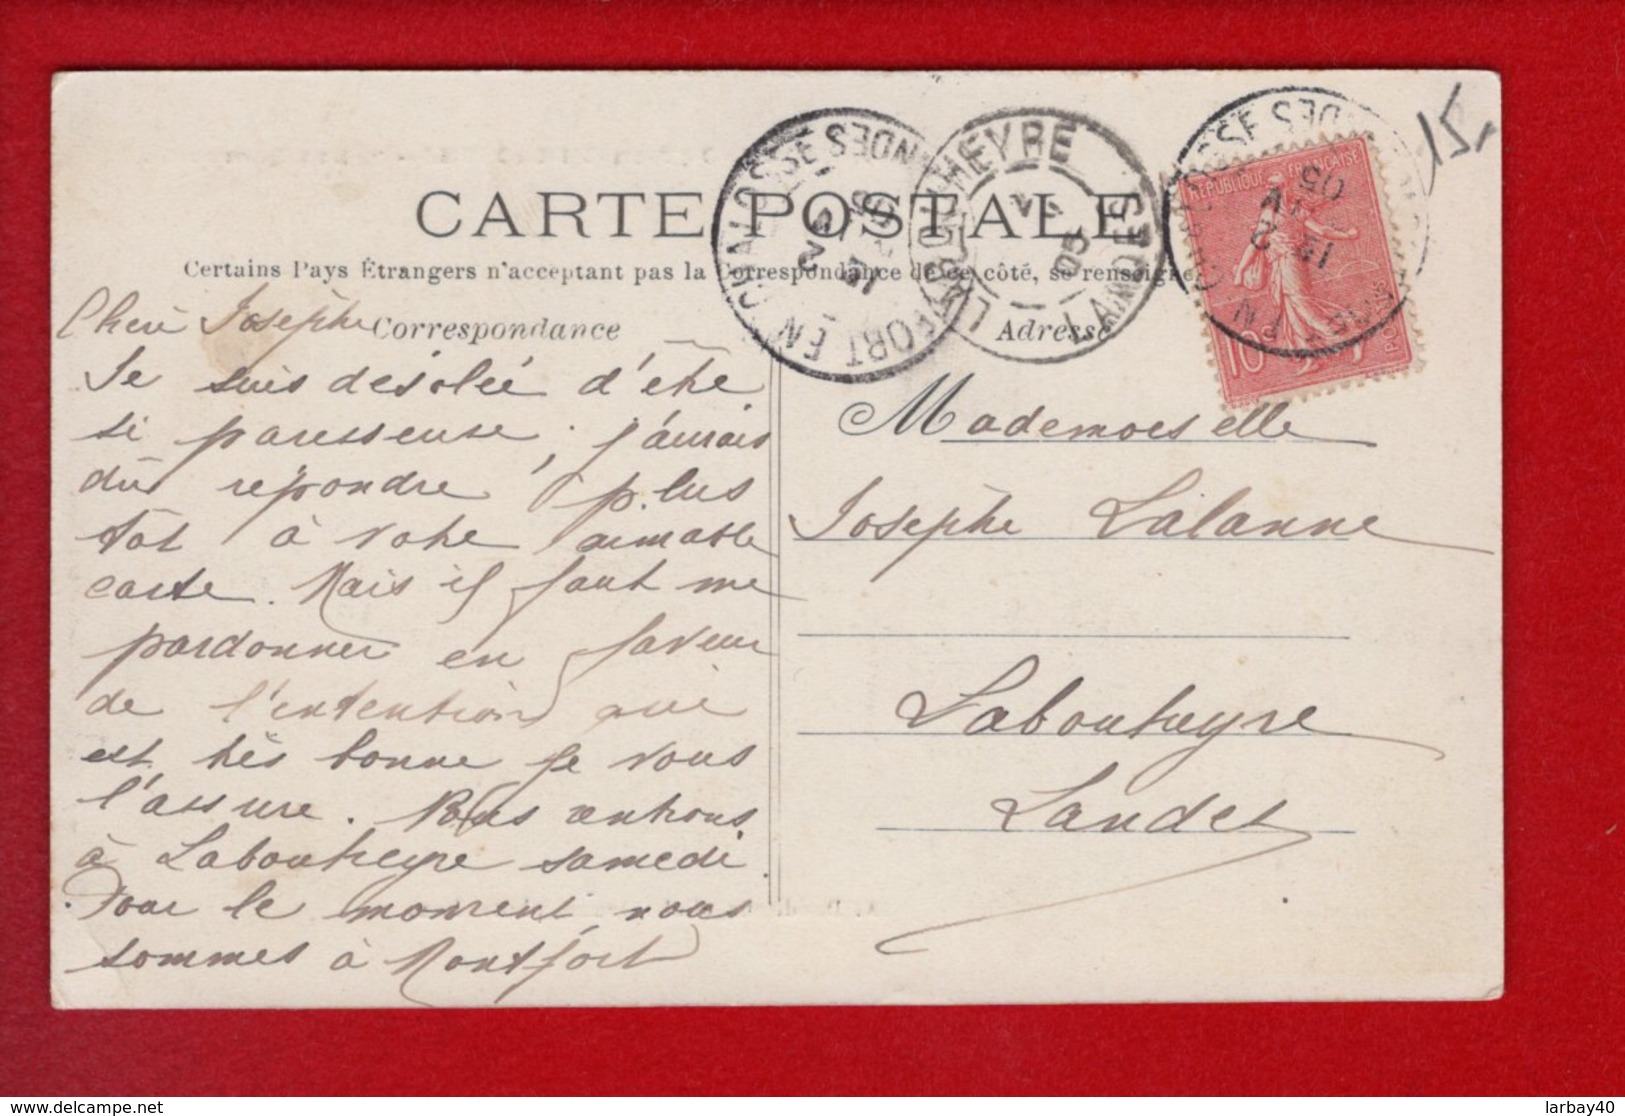 CARTE POSTALE
Certains Pays Étrangers n'acceptant pas la Correspondance de ce côté, se renseigne
Correspondance
Adresse
Chère Josèphe
Je suis désolée d'être
si paresseuse, j'aurais
dû répondre plus
tôt à votre aimable
carte. Mais il faut me
pardonner en faveur
de l'intention qui
est très bonne je vous
l'assure. Nous rentrons
à Labouheyre samedi.
Pour le moment nous
sommes à Montfort
Mademoiselle
Josèphe Lalanne
Labouheyre
Landes
15
RÉPUBLIQUE FRANÇAISE
10
POSTES
MONTFORT EN CHALOSSE LANDES
LABOUHEYRE LANDES
05
delcampe.net
larbay40